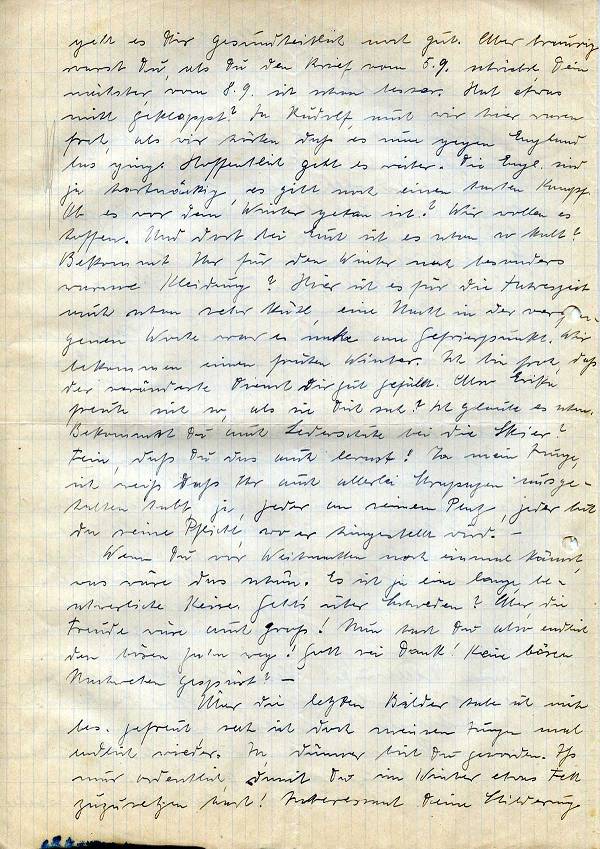 geht es Dir gesundheitlich noch gut. Aber traurig
warst Du, als Du den Brief vom 5.9. schriebst, Dein
nächster vom 8.9. ist schon besser. Hat etwas
nicht geklappt? Ja Rudolf, auch wir hier waren
froh, als wir hörten daß es nun gegen England
los ging. Hoffentlich geht es weiter. Die Engl. sind
ja hartnäckig, es gilt noch einen harten Kampf.
Ob es vor dem Winter getan ist? Wir wollen es
hoffen. Und dort bei Euch ist es schon so kalt?
Bekommt Ihr für den Winter noch besonders
warme Kleidung? Hier ist es für die Jahreszeit
auch schon sehr kühl, eine Nacht in der vergan-
genen Woche war es nahe am Gefrierpunkt. Wir
bekommen einen frühen Winter. Ich bin froh, daß
der veränderte Dienst Dir gut gefällt. Aber
freute sich so, als sie Dich sah? Ich glaube es schon.
Bekommst Du auch Lederschuhe bei die Skier?
Fein, daß Du das auch lernst! Ja mein Junge,
ich weiß daß Ihr auch allerlei Strapazen ausge-
halten habt, ja, jeder an seinem Platz, jeder tut
da seine Pflicht, wo er hingestellt wird. –
Wenn Du vor Weihnachten noch einmal kämst,
was wäre das schön. Es ist ja eine lange be-
schwerliche Reise. Geht's über Schweden? Aber die
Freude wäre auch groß! Nun hast Du also endlich
den bösen Zahn weg! Gott sei Dank! Keine bösen
Nachwehen gespürt? –
Über die letzten Bilder habe ich mich
bes. gefreut, sah ich doch meinen Jungen mal
endlich wieder. Ja, dünner bist Du geworden. Iß
nur ordentlich, damit Du im Winter etwas Fett
zuzusetzen hast! Interessant Deine Schilderung